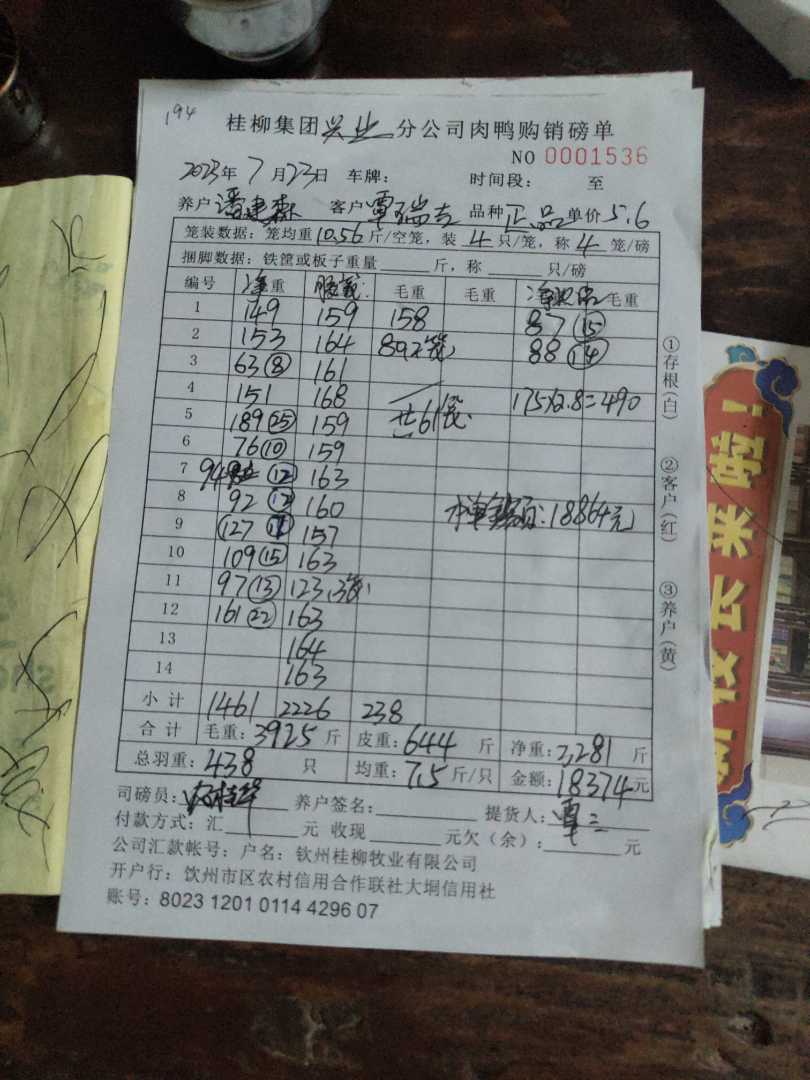 194
桂柳集团兴业分公司肉鸭购销磅单
NO 0001536
2023年7月23日 车牌: 时间段: 至
养户潘建森 客户覃瑞吉 品种正品单价5.6
笼装数据:笼均重10.56斤/空笼,装4只/笼,称4笼/磅
捆脚数据:铁筐或板子重量____斤,称____只/磅
编号 净重 毛重 毛重 毛重
1 149 159 158 87⑮
2 153 164 88⑭
3 63⑧ 161
4 151 168 175×2.8=490
5 189㉕ 159 共61笼
6 76⑩ 159
7 94⑫ 163
8 92⑫ 160 18864元
9 127 157
10 109⑮ 163
11 97⑬ 123
12 161㉒ 163
13 164
14 163
小计 1461 2226 238
合计 毛重:3925斤 皮重:644斤 净重:3,281斤
总羽重:438只 均重:7.5斤/只 金额:18374元
司磅员: 养户签名: 提货人:覃三
付款方式:汇____元 收现____元欠(余):____元
公司汇款帐号:户名:钦州桂柳牧业有限公司
开户行:钦州市区农村信用合作联社大垌信用社
账号:8023 1201 0114 4296 07
①存根(白)
②客户(红)
③养户(黄)
来啦!